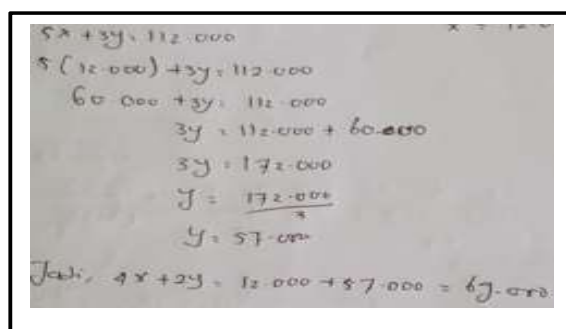 x = 12.0
5x + 3y = 112.000
5 (12.000) + 3y = 112.000
60.000 + 3y = 112.000
3y = 112.000 + 60.000
3y = 172.000
y = 172.000 / 3
y = 57.000
Jadi, 4x + 2y = 12.000 + 57.000 = 69.000